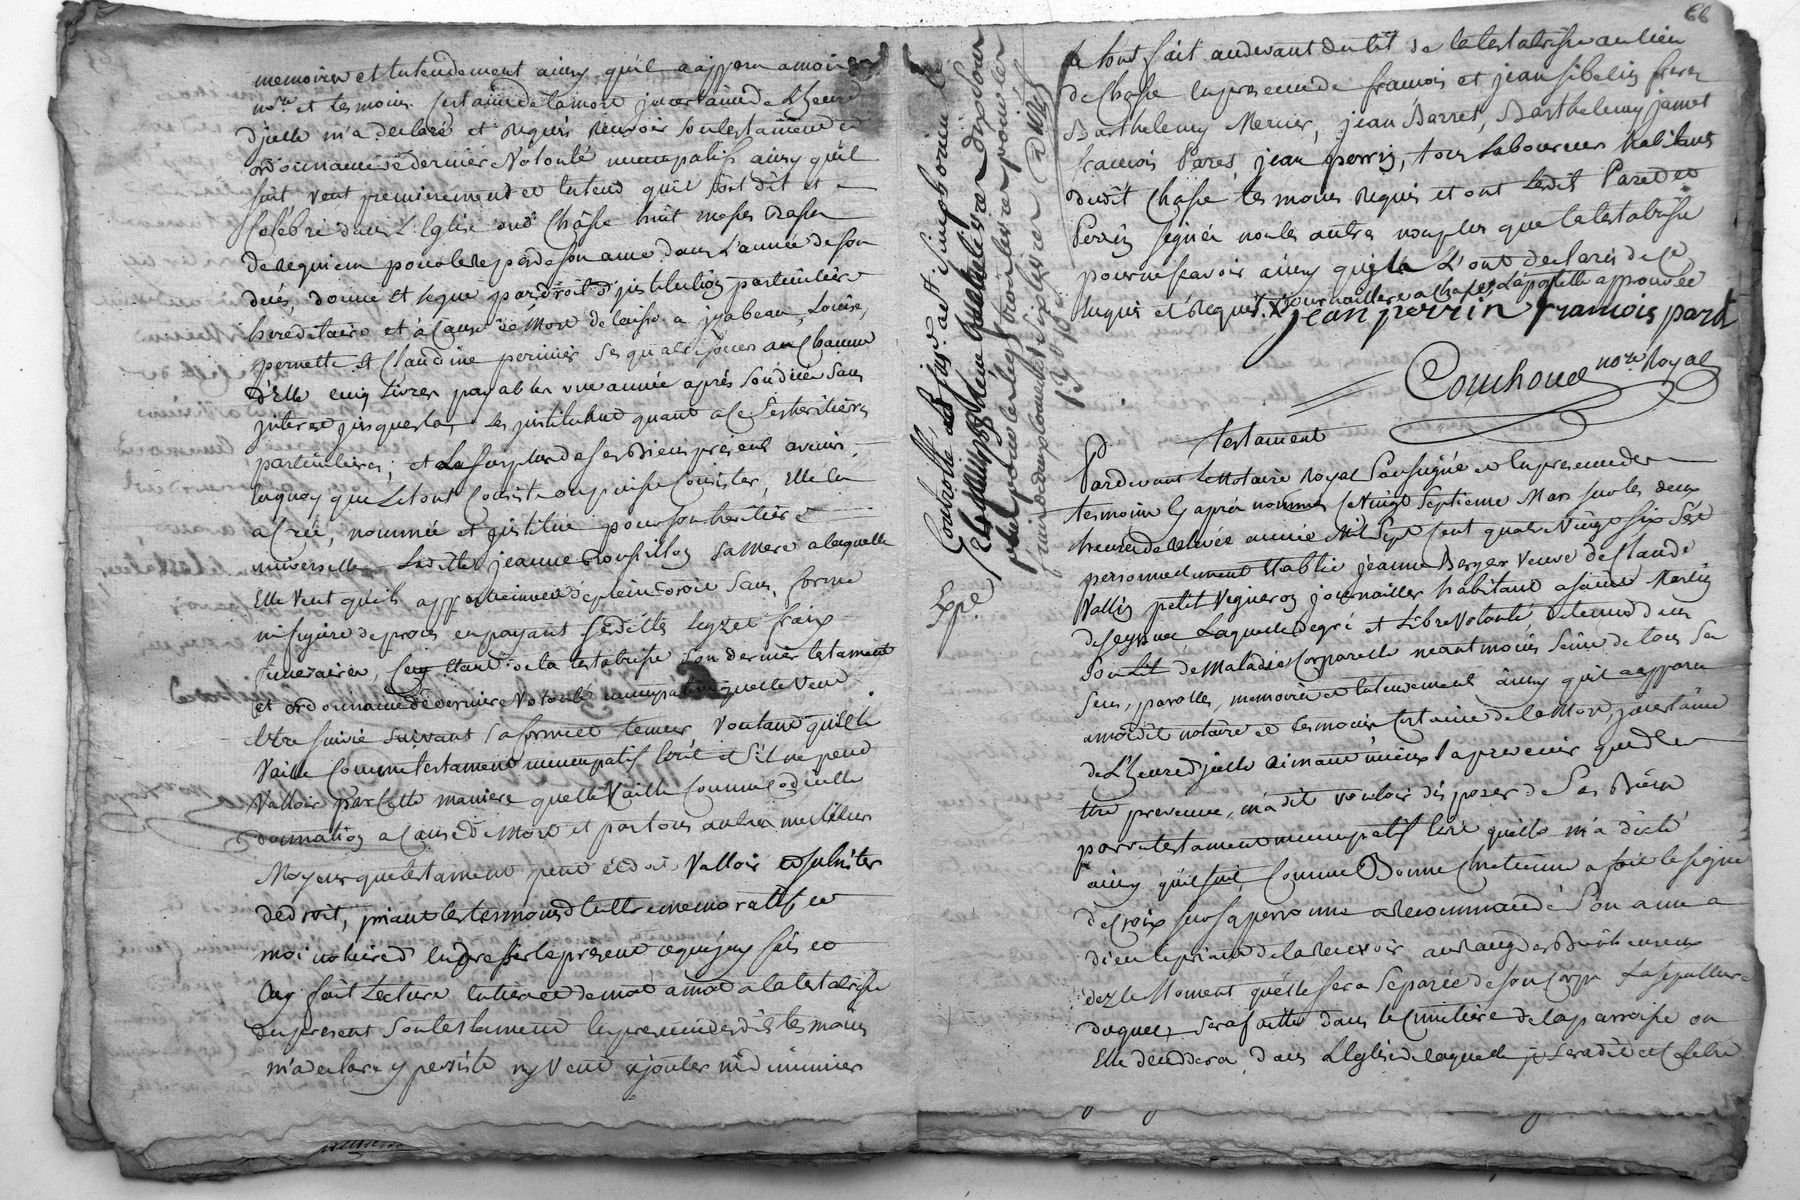 memoires et Entendement ainsy qu'il a apparu a moi
no.re et tesmoins Certaine de la mort jncertaine de L'heure
d'jcelle m'a declaré et Requis Recevoir son testament et
ordonnance de derniére Volonté nuncupatif ainsy qu'il
suit veut premierement et Entend qu'il soit dit et
Célébré dans L'Eglise dud Châsse huit messes Basses
de requiem pour le repos de son ame dans L'année de son
decés, donne et legue par droit d'jnstitution particuliére
heréditaire et à Cause de Mort de laisse a jzabeau, Louise,
pernette et Claudine perinier ses quatre soeurs a Chaqune
d'Elle cinq livres payables une année aprés son decés sans
jnterest jusques las Les jnstituant quant a ce ses heritiéres
particulieres; et Le surplus de ses Biens presents avenir
En quoy que Le tout Consiste ou puisse Consister, Elle En
a Créé, nommée et jnstitué pour son heritiére
universelle Laditte jeanne Roussillon sa Mere a laquelle
Elle veut qu'ils appartiennent de plein droit sans, forme
ni figure de procés en payant sesdittes legs et fraix
funeraires, Cecy Etant de la testatrise son dernier testament
et ordonnance de derniere Volonté nuncupative quelle veut
Etre suivie suivant sa forme et teneur, voulant qu'il
vaille Comme testament nuncupatif Ecrit et s'il ne peut
Valloir par Cette maniere quelle Vaille Comme Codicille
donnation a Cause de Mort et par tous autres meilleurs
Moyens que testament peut et doit Valloir et subsister
de droit, priant les tesmoins d'Etre memoratifs et
moi notaire d'En dresser le present ce que j'ay fait et
Ay fait Lecture Entiére et de mot a mot a la testatrise
du present son testament En presence desdits tesmoins
m'a declaré y persister ny veut ajouter ni diminuer
66
Le tout fait audevant du lit de la testatrise au lieu
de Chasse En presence de francois et jean sibelin freres
Barthelemy Mercier, jean Barret, Barthelemy jamet
francois Paret, jean perrin, tous Laboureurs habitants
dudit Chasse tesmoins Requis et ont Lesdits Paret et
Perrin signés non les autres non plus que la testatrise
pour ne scavoir ainsy qu'ils L'ont declarés de ce
Requis et Requis. X journaillere a Chasse, Lapostille approuvée
jean perrin francois paret
Couchoud no.re Royal
Expé
testament
Pardevant Le Notaire Royal Soussigné et En presence des
tesmoins Cy aprés nommés Le Vingt Septieme Mars sur les deux
heures de relevée année Mil Sept Cent quatre Vingt Six S'est
personnellement Etablie jeanne Berger veuve de Claude
Vallin petit Vigneron journailler habitant a Saint Martin
de Seyssuel Laquelle de gré et Libre Volonté, detenue dans
Son Lit de Maladie Corporelle néantmoins Saine de tous Ses
Sens, parolles, memoires et Entendement ainsy qu'il a apparu
amoidit notaire et tesmoins Certaine de la Mort, jncertaine
de L'heure d'jcelle aimant mieux la prevenir que d'En
Etre prevenue, m'a dit vouloir disposer de Ses Biens
par testament nuncupatif Ecrit quelle m'a dicté
ainsy qu'il suit, Comme Bonne Chretienne a fait le signe
de Croix sur sa personne a Recommandé Son ame a
dieu le priant de la Recevoir au Rang des Bienheureux
dez le Moment quelle sera Separée de son Corps La sepulture
duquel sera faitte dans le Cimetiére de la parroisse ou
Elle decedera dans L'Eglise de laquelle jl sera dit et Celebré